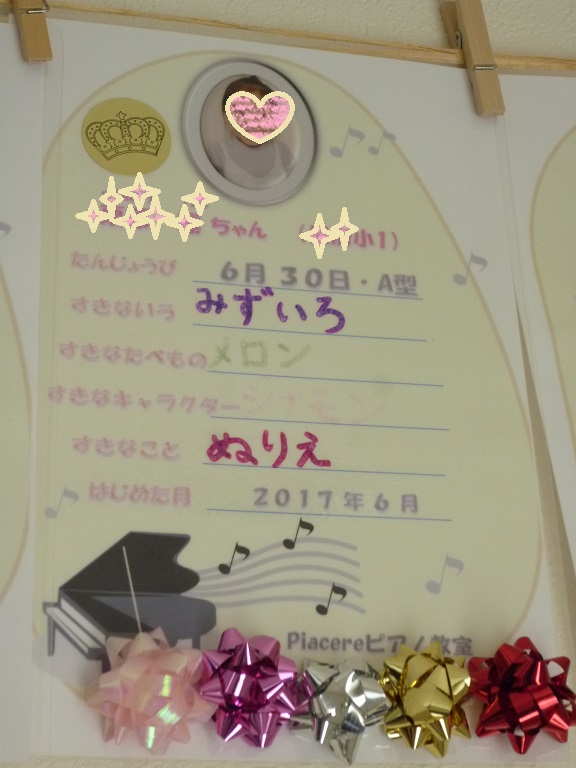 ちゃん
小1)
たんじょうび 6月30日・A型
すきないろ みずいろ
すきなたべもの メロン
すきなキャラクター シナモン
すきなこと ぬりえ
はじめた月 2017年6月
Piacereピアノ教室